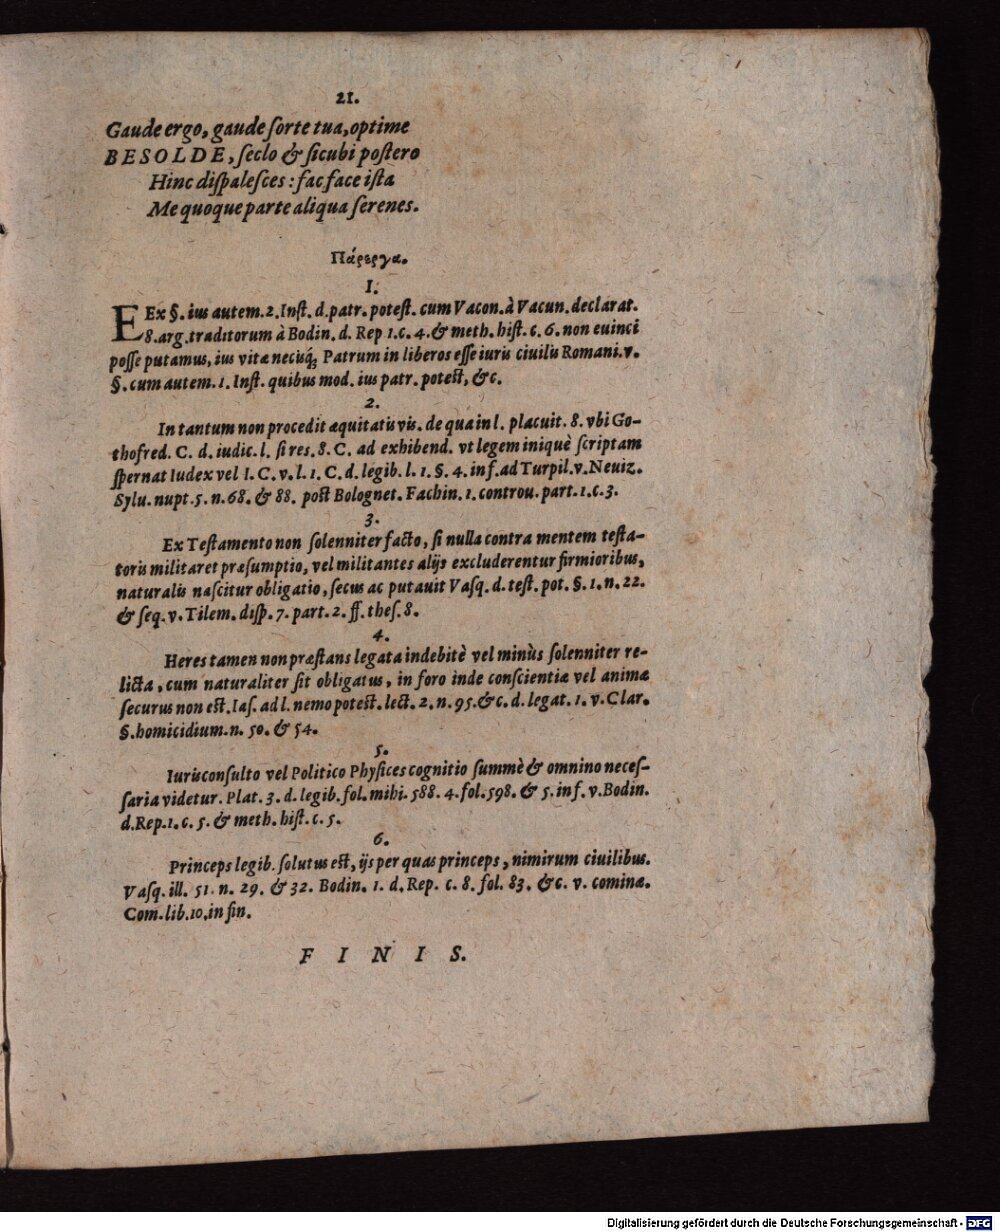 21.
Gaude ergo, gaude ſorte tua, optime
BESOLDE, ſeclo & ſicubi poſtero
Hinc diſpaleſces: fac face iſta
Me quoque parte aliqua ſerenes.
Πάρεργα.
I.
EEx §. ius autem. 2. Inſt. d. patr. poteſt. cum Vacon. à Vacun. declarat.
8. arg. traditorum à Bodin. d. Rep 1. c. 4. & meth. hiſt. c. 6. non euinci
poſſe putamus, ius vitæ neciſq́; Patrum in liberos eſſe iuris ciuilis Romani. v.
§. cum autem. 1. Inſt. quibus mod. ius patr. poteſt, &c.
2.
In tantum non procedit æquitatis vis. de qua in l. placuit. 8. vbi Go-
thofred. C. d. iudic. l. ſi res. 8. C. ad exhibend. vt legem iniquè ſcriptam
ſpernat Iudex vel I. C. v. l. 1. C. d. legib. l. 1. §. 4. inf. ad Turpil. v. Neuiz.
Sylu. nupt. 5. n. 68. & 88. poſt Bolognet. Fachin. 1. controu. part. 1. c. 3.
3.
Ex Teſtamento non ſolenniter facto, ſi nulla contra mentem teſta-
toris militaret præſumptio, vel militantes alijs excluderentur firmioribus,
naturalis naſcitur obligatio, ſecus ac putauit Vaſq. d. teſt. pot. §. 1. n. 22.
& ſeq. v. Tilem. diſp. 7. part. 2. ff. theſ. 8.
4.
Heres tamen non præſtans legata indebitè vel minùs ſolenniter re-
licta, cum naturaliter ſit obligatus, in foro inde conſcientiæ vel animæ
ſecurus non eſt. Iaſ. ad l. nemo poteſt. lect. 2. n. 95. &c. d. legat. 1. v. Clar.
§. homicidium. n. 50. & 54.
5.
Iurisconſulto vel Politico Phyſices cognitio ſummè & omnino neceſ-
ſaria videtur. Plat. 3. d. legib. fol. mihi. 588. 4. fol. 598. & 5. inf. v. Bodin.
d. Rep. 1. c. 5. & meth. hiſt. c. 5.
6.
Princeps legib. ſolutus eſt, ijs per quas princeps, nimirum ciuilibus.
Vaſq. ill. 51. n. 29. & 32. Bodin. 1. d. Rep. c. 8. fol. 83. &c. v. cominæ.
Com. lib. 10. in fin.
FINIS.
Digitalisierung gefördert durch die Deutsche Forschungsgemeinschaft - DFG